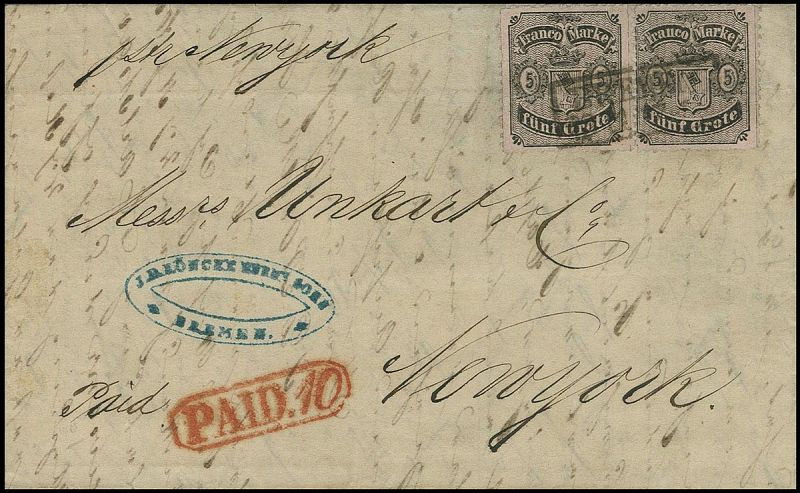 Franco Marke
5 5
fünf Grote
Franco Marke
5 5
fünf Grote
per Newyork
Messrs Unkart & Co,
J.D. KÖNCKE
BREMEN.
Newyork.
Paid
PAID. 10